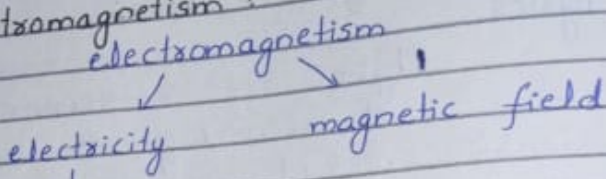 tromagnetism
electromagnetism
electricity magnetic field